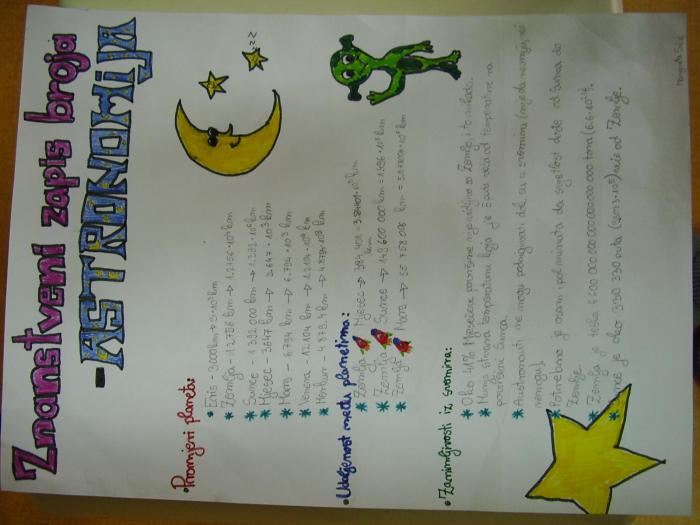 Znanstveni zapis broja
- ASTRONOMIJA
zz
• Promjeri planeta:
* Eris - 3000 km → 3·10³ km
* Zemlja - 12 756 km → 1.2756·10⁴ km
* Sunce - 1 392 000 km → 1.392·10⁶ km
* Mjesec - 3647 km → 3.647·10³ km
* Mars - 6794 km → 6.794·10³ km
* Venera - 12 104 km → 1.2104·10⁴ km
* Merkur - 4879.4 km → 4.8794·10³ km
• Udaljenost među planetima:
* Zemlja Mjesec → 384 401 = 3.84401·10⁵ km
km
* Zemlja Sunce → 149 600 000 km = 1.496·10⁸ km
* Zemlja Mars → 55 758 006 km =
• Zanimljivosti iz svemira:
* Oko 41% Mjesečeve površine nije vidljivo sa Zemlje, i to nikada.
* Munja stvara temperaturu koja je 5 puta veća od temperature na
površini Sunca.
* Austronauti ne mogu podrignuti dok su u svemiru (nije da ne smiju, već
ne mogu)
* Potrebno je osam i pol minuta da svjetlost dođe od Sunca do
Zemlje.
* Zemlja je teška 6 600 000 000 000 000 000 000 tona (6.6·10²¹).
* Sunce je oko 330 330 puta veće od Zemlje.